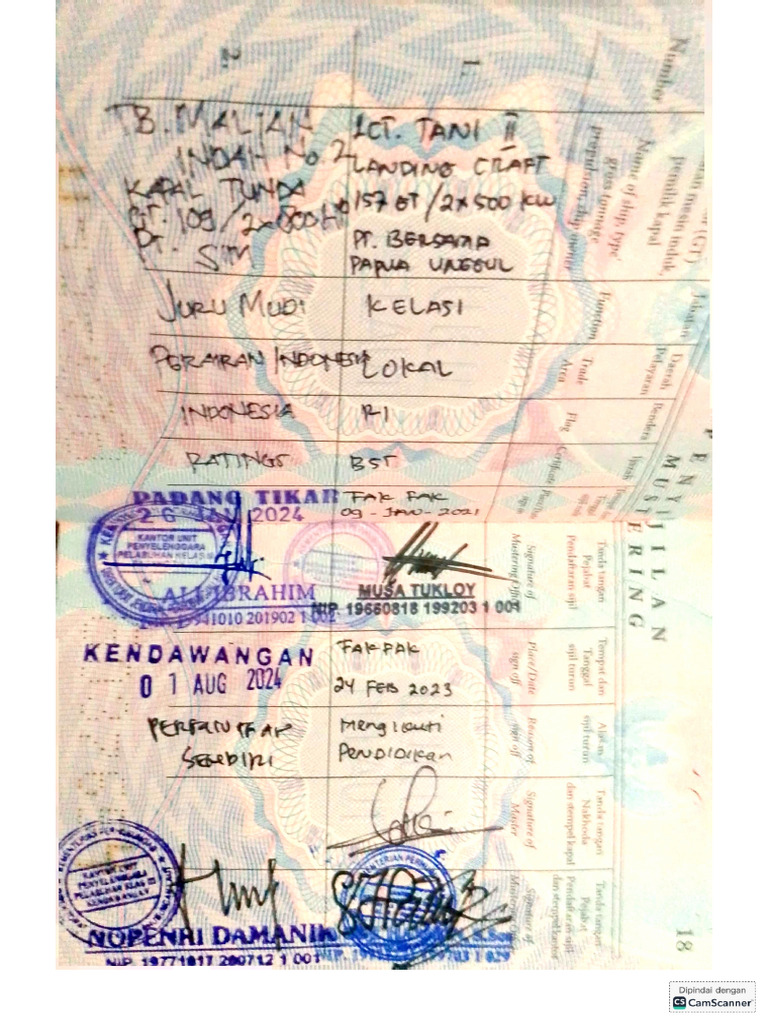 PENYIJILAN
MUSTERING
Number
1.
2.
pemilik kapal
Name of ship, type
gross tonnage
LCT. TANI II
LANDING CRAFT
157 GT / 2 x 500 KW
PT. BERSAMA
PAPUA UNGGUL
TB. MALIAN
INDAH No. 2
KAPAL TUNDA
PT. SIM
Function
KELASI
JURU MUDI
Daerah Pelayaran
Trade Area
LOKAL
PERAIRAN INDONESIA
Bendera
Flag
RI
INDONESIA
Ijazah
Certificate
BST
RATINGS
FAK FAK
09 - JAN - 2021
PADANG TIKAR
26 JAN 2024
Tanda tangan
Pejabat
Pendaftaran sijil
Signature of
Mustering Officer
MUSA TUKLOY
NIP. 19660818 199203 1 001
KANTOR UNIT
PENYELENGGARA
PELABUHAN KELAS III
ALI IBRAHIM
19941010 201902 1 002
Tempat dan
Tanggal
sijil turun
Place/Date
sign off
FAKFAK
24 FEB 2023
KENDAWANGAN
01 AUG 2024
Alasan
sijil turun
Reason of
sign off
Mengikuti
PENDIDIKAN
PERMINTAAN
SENDIRI
Tanda tangan
Nakhoda
dan stempel kapal
Signature of
Master
Tanda tangan
Pejabat
Pendaftaran sijil
dan stempel kantor
Signature of
KANTOR UNIT
PENYELENGGARA
PELABUHAN KELAS III
KENDAWANGAN
NOPENRI DAMANIK
NIP. 19771017 200712 1 001
18
Dipindai dengan
CS CamScanner